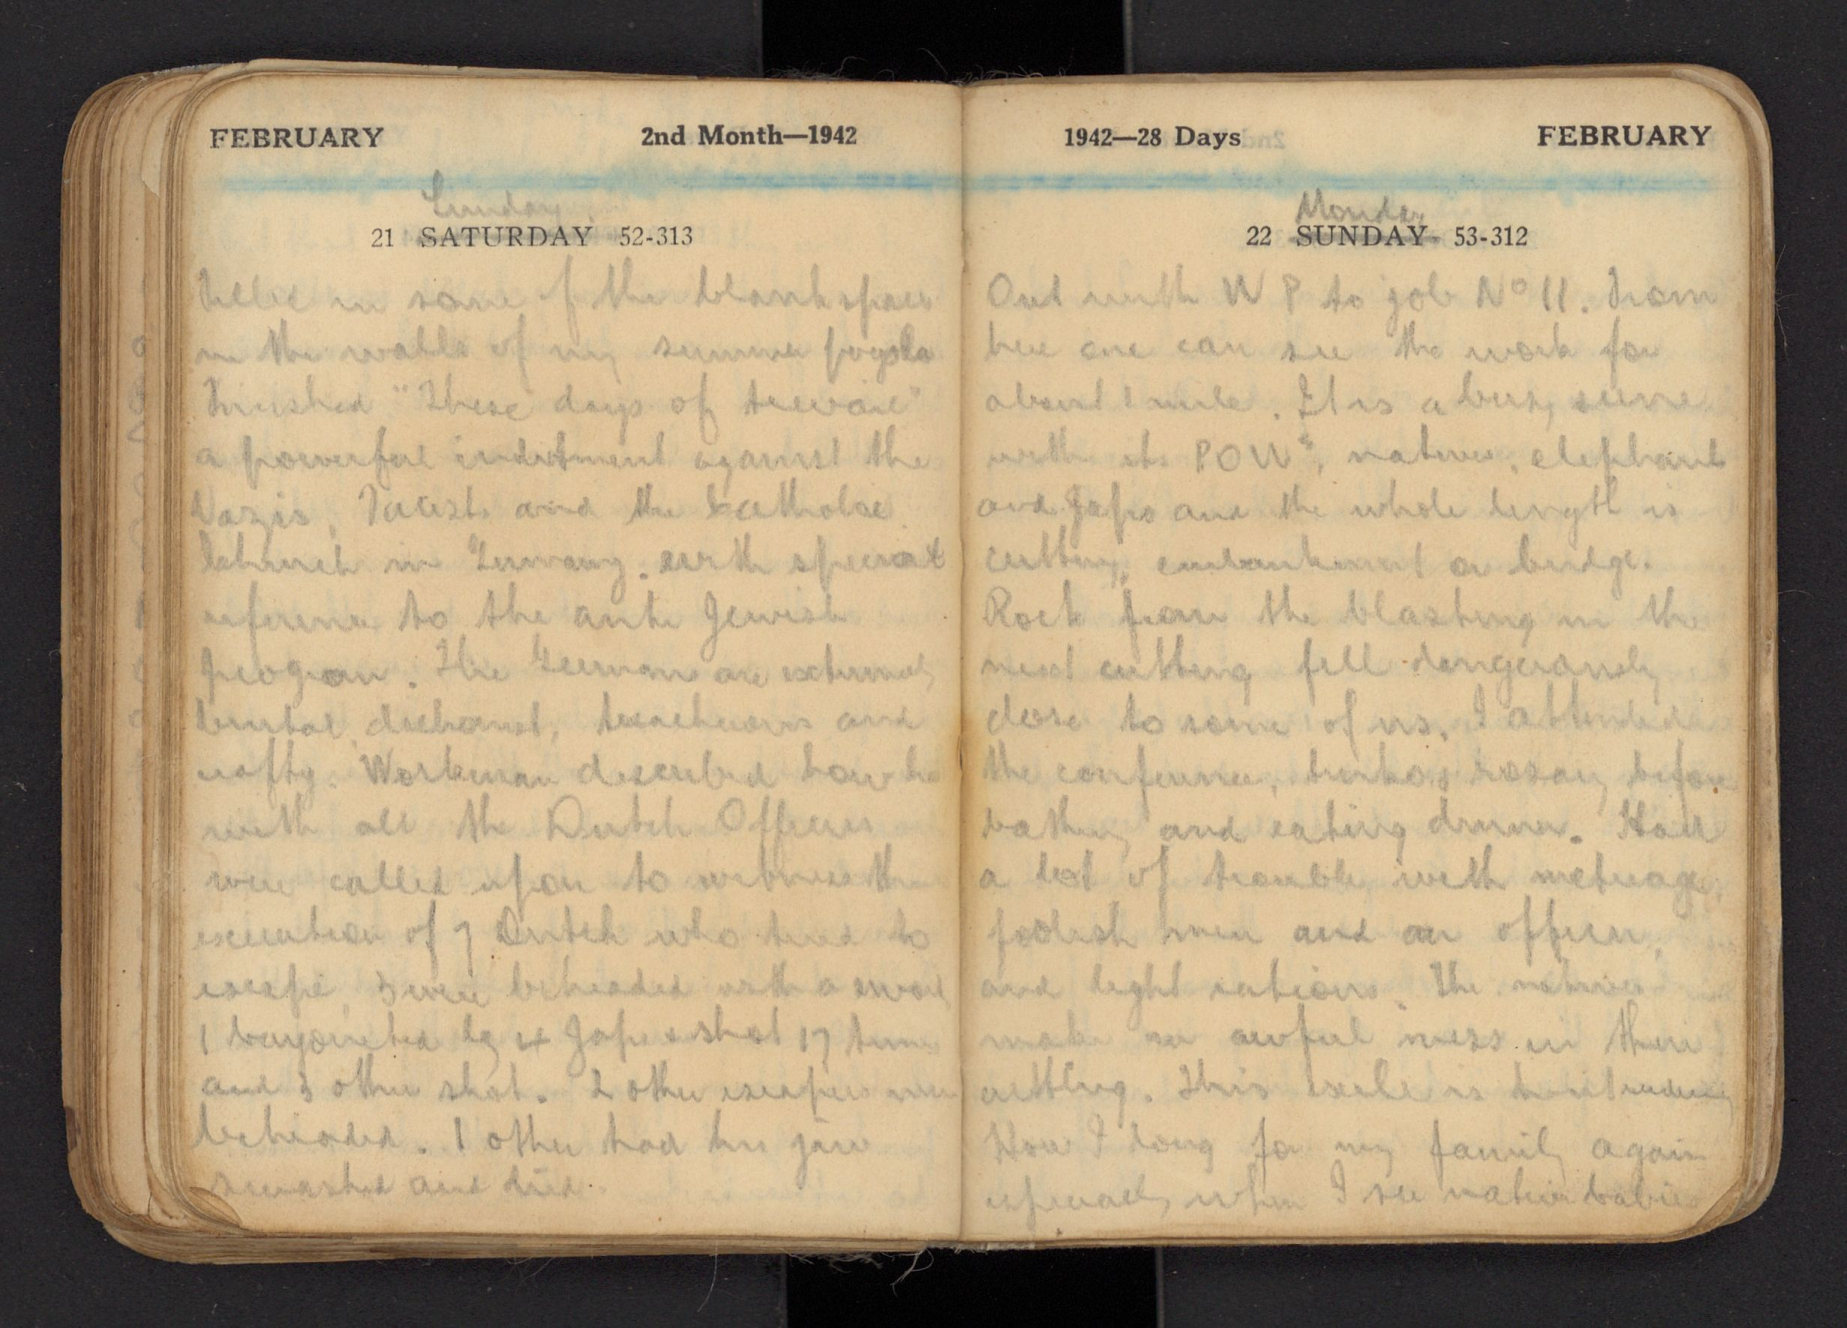 FEBRUARY 2nd Month—1942
Sunday
21 SATURDAY 52-313
Filled in some of the blank spaces
in the walls of my summer
Finished "These days of
a powerful indictment against the
Nazis, and the Catholic
Church in Germany. with special
reference to the anti Jewish
program. The Germans are extremely
brutal, dishonest, treacherous and
crafty. Workman described how he
with all the Dutch Officers
were called upon to witness the
execution of 7 Dutch who tried to
escape, 3 were beheaded with a sword
1 bayoneted by 4 Japs & shot 17 times
and 3 other shot. 2 other escapees were
beheaded. 1 other had his jaw
smashed and died.
1942—28 Days FEBRUARY
Monday
22 SUNDAY 53-312
Out with W P to job No 11. From
here one can see the work for
about 1 mile. It is a busy scene
with its POWs, natives, elephants
and Japs and the whole length is
cutting, embankment or bridge.
Rock from the blasting in the
next cutting fell dangerously
close to some of us. I attended
the conference, rosary before
bathing and eating dinner. Had
a lot of trouble with
foolish men and an officer,
and light rations. The natives
make an awful mess in their
cutting. This exile is
How I long for my family again
especially when I see native babies